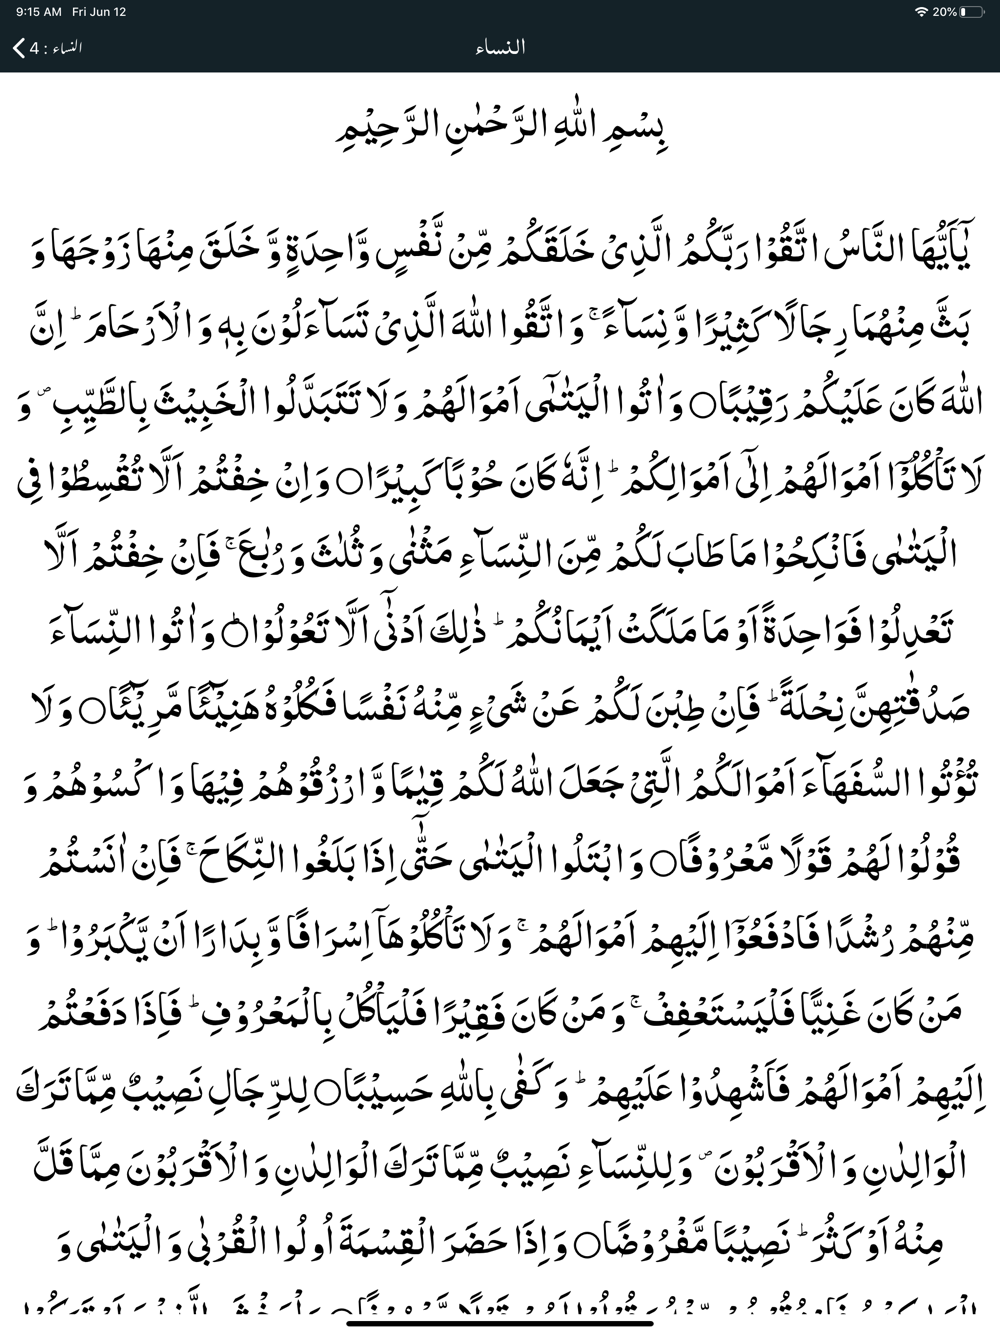 9:15 AM Fri Jun 12 20%
النساء : 4 النساء
بِسْمِ اللّٰهِ الرَّحْمٰنِ الرَّحِيْمِ
يٰۤاَيُّهَا النَّاسُ اتَّقُوْا رَبَّكُمُ الَّذِىْ خَلَقَكُمْ مِّنْ نَّفْسٍ وَّاحِدَةٍ وَّ خَلَقَ مِنْهَا زَوْجَهَا وَ
بَثَّ مِنْهُمَا رِجَالًا كَثِيْرًا وَّ نِسَآءً ۚ وَ اتَّقُوا اللّٰهَ الَّذِىْ تَسَآءَلُوْنَ بِهٖ وَ الْاَرْحَامَ ؕ اِنَّ
اللّٰهَ كَانَ عَلَيْكُمْ رَقِيْبًا○ وَ اٰتُوا الْيَتٰمٰٓى اَمْوَالَهُمْ وَ لَا تَتَبَدَّلُوا الْخَبِيْثَ بِالطَّيِّبِ ۪ وَ
لَا تَاْكُلُوْۤا اَمْوَالَهُمْ اِلٰٓى اَمْوَالِكُمْ ؕ اِنَّهٗ كَانَ حُوْبًا كَبِيْرًا○ وَ اِنْ خِفْتُمْ اَلَّا تُقْسِطُوْا فِى
الْيَتٰمٰى فَانْكِحُوْا مَا طَابَ لَكُمْ مِّنَ النِّسَآءِ مَثْنٰى وَ ثُلٰثَ وَ رُبٰعَ ۚ فَاِنْ خِفْتُمْ اَلَّا
تَعْدِلُوْا فَوَاحِدَةً اَوْ مَا مَلَكَتْ اَيْمَانُكُمْ ؕ ذٰلِكَ اَدْنٰۤى اَلَّا تَعُوْلُوْا○ؕ وَ اٰتُوا النِّسَآءَ
صَدُقٰتِهِنَّ نِحْلَةً ؕ فَاِنْ طِبْنَ لَكُمْ عَنْ شَىْءٍ مِّنْهُ نَفْسًا فَكُلُوْهُ هَنِيْٓـًٔا مَّرِيْٓـًٔا○ وَ لَا
تُؤْتُوا السُّفَهَآءَ اَمْوَالَكُمُ الَّتِىْ جَعَلَ اللّٰهُ لَكُمْ قِيٰمًا وَّ ارْزُقُوْهُمْ فِيْهَا وَ اكْسُوْهُمْ وَ
قُوْلُوْا لَهُمْ قَوْلًا مَّعْرُوْفًا○ وَ ابْتَلُوا الْيَتٰمٰى حَتّٰۤى اِذَا بَلَغُوا النِّكَاحَ ۚ فَاِنْ اٰنَسْتُمْ
مِّنْهُمْ رُشْدًا فَادْفَعُوْۤا اِلَيْهِمْ اَمْوَالَهُمْ ۚ وَ لَا تَاْكُلُوْهَاۤ اِسْرَافًا وَّ بِدَارًا اَنْ يَّكْبَرُوْا ؕ وَ
مَنْ كَانَ غَنِيًّا فَلْيَسْتَعْفِفْ ۚ وَ مَنْ كَانَ فَقِيْرًا فَلْيَاْكُلْ بِالْمَعْرُوْفِ ؕ فَاِذَا دَفَعْتُمْ
اِلَيْهِمْ اَمْوَالَهُمْ فَاَشْهِدُوْا عَلَيْهِمْ ؕ وَ كَفٰى بِاللّٰهِ حَسِيْبًا○ لِلرِّجَالِ نَصِيْبٌ مِّمَّا تَرَكَ
الْوَالِدٰنِ وَ الْاَقْرَبُوْنَ ۪ وَ لِلنِّسَآءِ نَصِيْبٌ مِّمَّا تَرَكَ الْوَالِدٰنِ وَ الْاَقْرَبُوْنَ مِمَّا قَلَّ
مِنْهُ اَوْ كَثُرَ ؕ نَصِيْبًا مَّفْرُوْضًا○ وَ اِذَا حَضَرَ الْقِسْمَةَ اُولُوا الْقُرْبٰى وَ الْيَتٰمٰى وَ